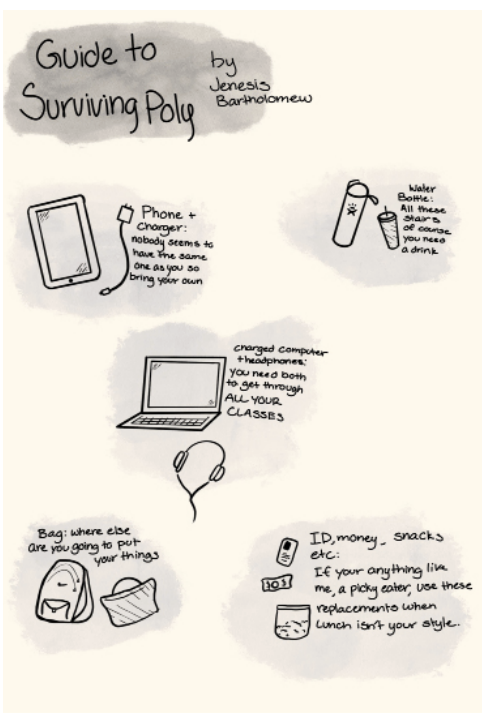 Guide to
Surviving Poly
by
Jenesis
Bartholomew
Phone +
Charger:
nobody seems to
have the same
one as you so
bring your own
Water
Bottle:
All these
stairs
of course
you need
a drink
charged computer
+headphones:
you need both
to get through
ALL YOUR
CLASSES
Bag: where else
are you going to put
your things
ID, money, snacks
etc:
If your anything like
me, a picky eater, use these
replacements when
lunch isn't your style.